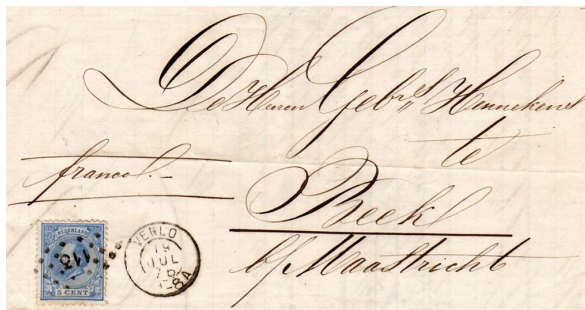 De Heeren Gebrs Hennekens
te
franco.-
Beek
b/Maastricht
NEDERLAND
113
5 CENT
VENLO
19
JUL
75
8A